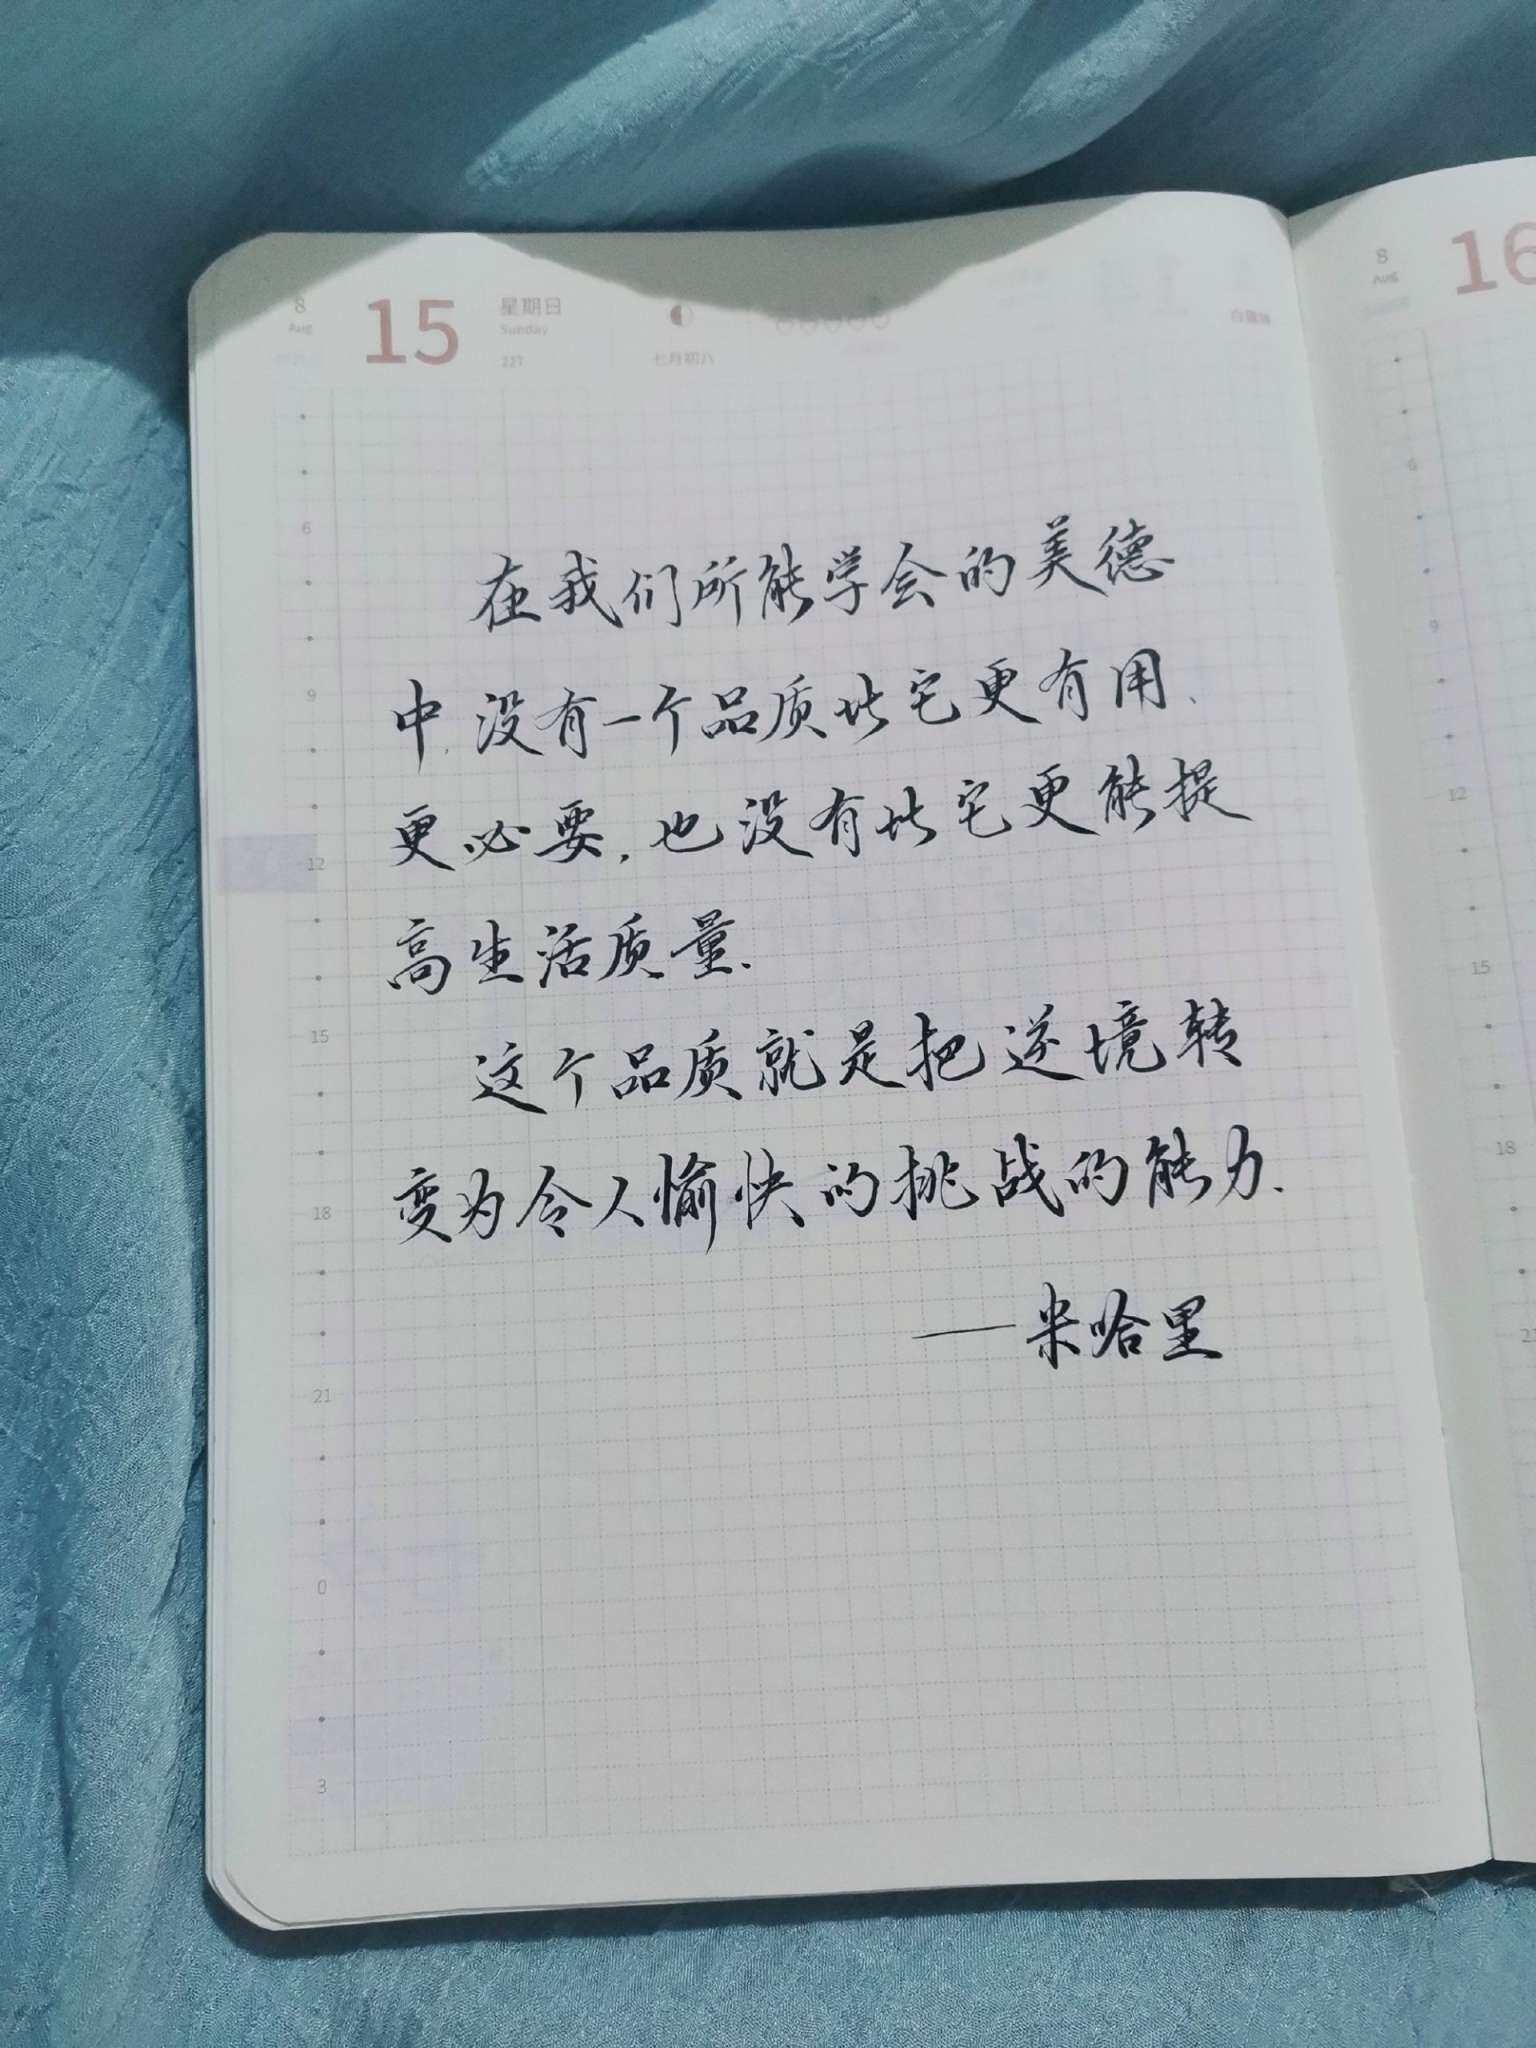 8
Aug
15
星期日
Sunday
227
七月初八
8
Aug
16
在我们所能学会的美德
中,没有一个品质比它更有用、
更必要,也没有比它更能提
高生活质量.
这个品质就是把逆境转
变为令人愉快的挑战的能力.
——米哈里
6
9
12
15
18
21
0
3
6
9
12
15
18